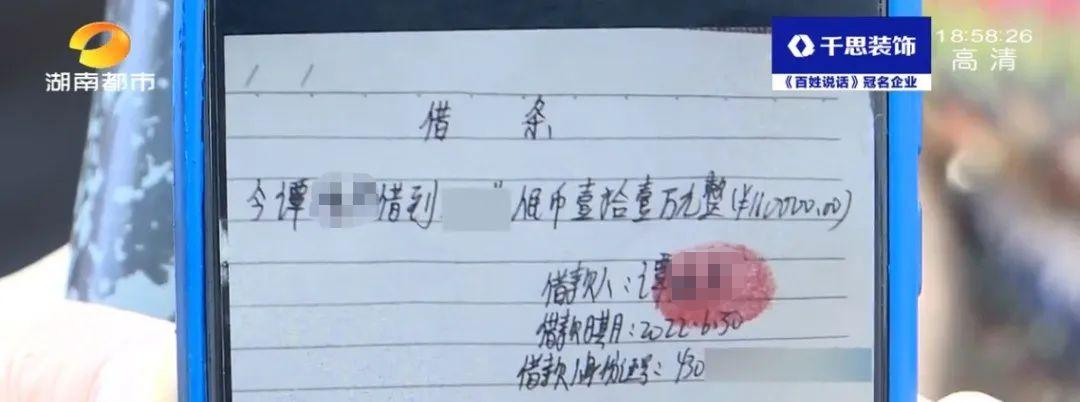 湖南都市
千思装饰
《百姓说话》冠名企业
18:58:26
高清
借 条
今谭 借到 人民币壹拾壹万元整(¥110000.00)
借款人:谭
借款日期:2022.6.30
借款人身份证号:430